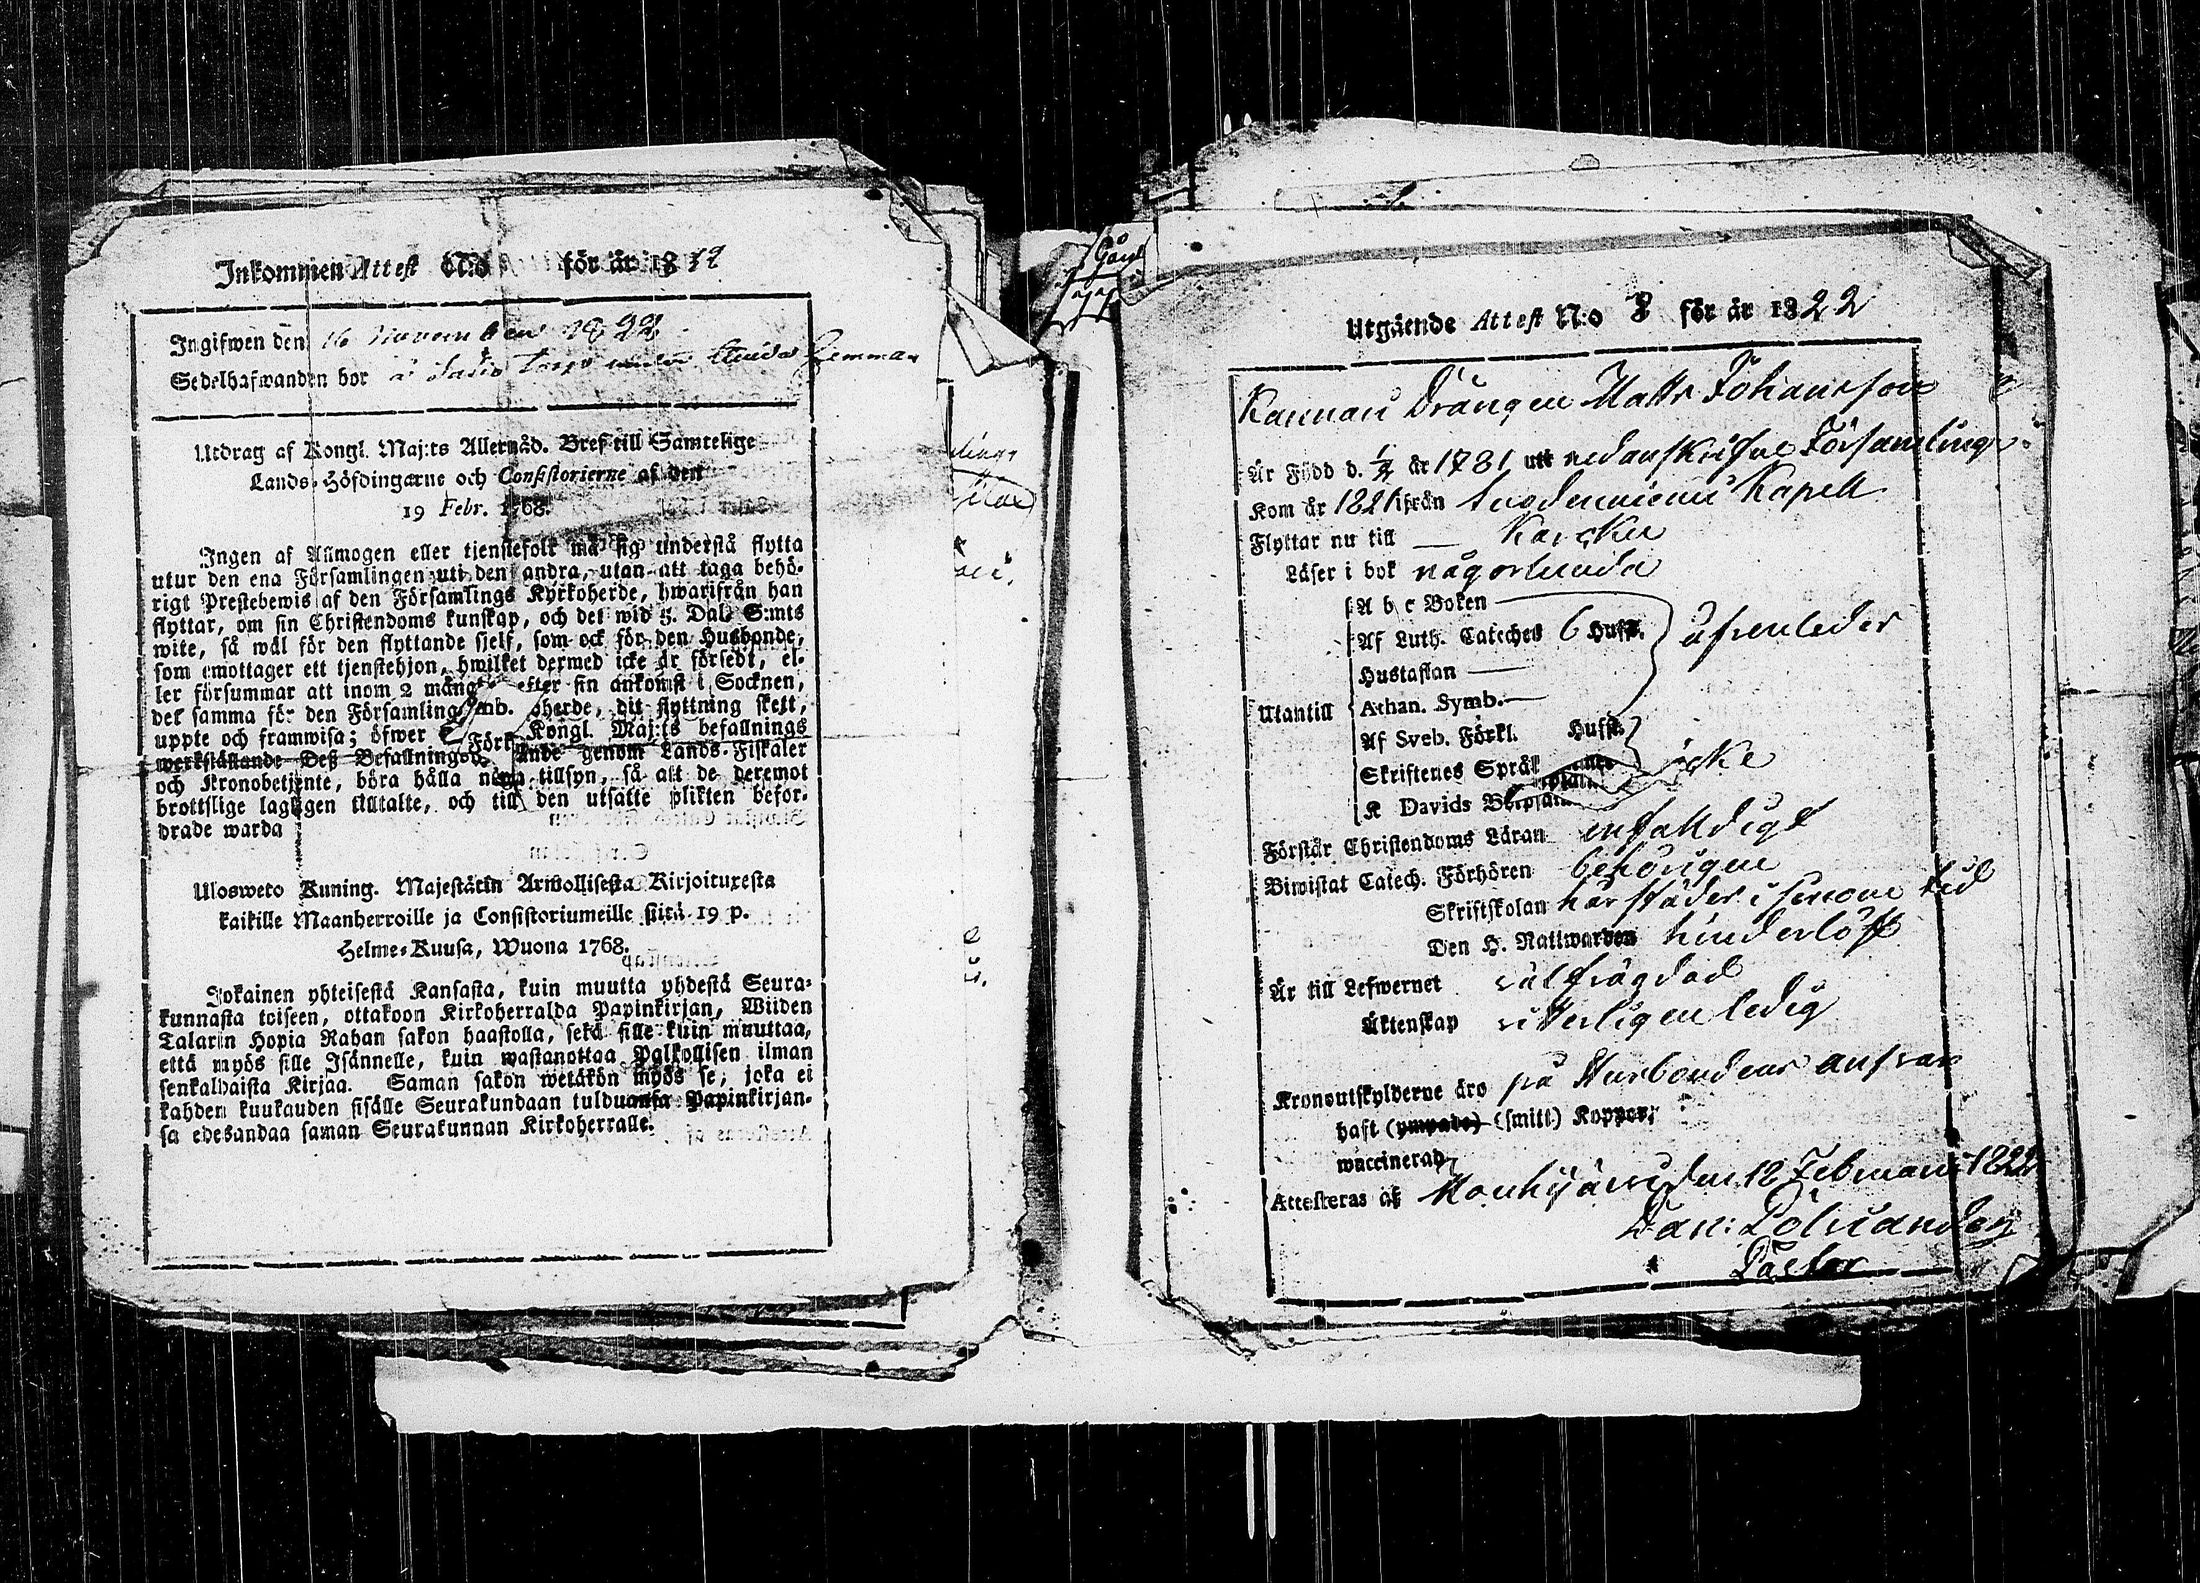 Inkommen Attest N:o för år 1822
Ingifwen den 16 November 1822
Sedelhafwanden bor å Torp under Hemman
Utdrag af Kongl. Maj:ts Allernåd. Bref till Samtelige
Lands-Höfdingarne och Consistorierne af den
19 Febr. 1768.
Ingen af Allmogen eller tjenstefolk må sig understå flytta
utur den ena Församlingen uti den andra, utan att taga behö-
rigt Prestebewis af den Församlings Kyrkoherde, hwarifrån han
flyttar, om sin Christendoms kunskap, och det wid 5. Dal. S:mts
wite, så wäl för den flyttande sjelf, som ock för den Husbonde,
som emottager ett tjenstehjon, hwilket dermed icke är försedt, el-
ler försummar att inom 2 efter sin ankomst i Socknen,
det samma för den Församling dit flyttning skett,
uppte och framwisa; öfwer Kongl. Maj:ts befallnings
werkställande Deß Befallningsh. genom Lands-Fiskaler
och Kronobetjente, böra hålla nöga tillsyn, så att de deremot
brottslige lagligen tilltalte, och till den utsatte plikten befor-
drade warda
Ulosweto Kuning. Majestätin Armollisesta Kirjoituxesta
kaikille Maanherroille ja Consistoriumeille siitä 19 p.
Helme-Kuusa, Wuona 1768.
Jokainen yhteisestä Kansasta, kuin muutta yhdestä Seura-
kunnasta toiseen, ottakoon Kirkoherralda Papinkirjan, Wiiden
Talarin Hopia Rahan sakon haastolla, sekä sille kuin muuttaa,
että myös sille Isännelle, kuin wastanottaa Palkollisen ilman
senkalhaista Kirjaa. Saman sakon wetäkön myös se, joka ei
kahden kuukauden sisälle Seurakundaan tulduansa Papinkirjan-
sa edesandaa saman Seurakunnan Kirkoherralle.
Utgående Attest N:o 8 för år 1822
Drängen Matts Johansson
Är Född d. år 1781 uti nedanskrifne Församling
Kom år 1821 ifrån Suodenniemi Kapell
Flyttar nu till — Karcku
Läser i bok någorlunda
A b c Boken
Af Luth. Cateches 6 Hufst. äfvenledes
Hustaflan
Utantill Athan. Symb.
Af Sveb. Förkl. Hufst.
Skriftenes Språk icke
K Davids Botpsalm
Förstår Christendoms Läran enfaldigt
Biwistat Catech. Förhören behörigen
Skriftskolan härstädes i sinom tid
Den H. Nattwarden hinderlöst
Är till Lefwernet välfrägdad
Äktenskap vitterligen ledig
Kronoutskylderne äro på Husbondens ansvar
haft (ympade) (smitt) Koppor,
waccinerad
Attesteras af Mouhijärvi den 12 Februarii 1822
Dan: Polviander
Pastor